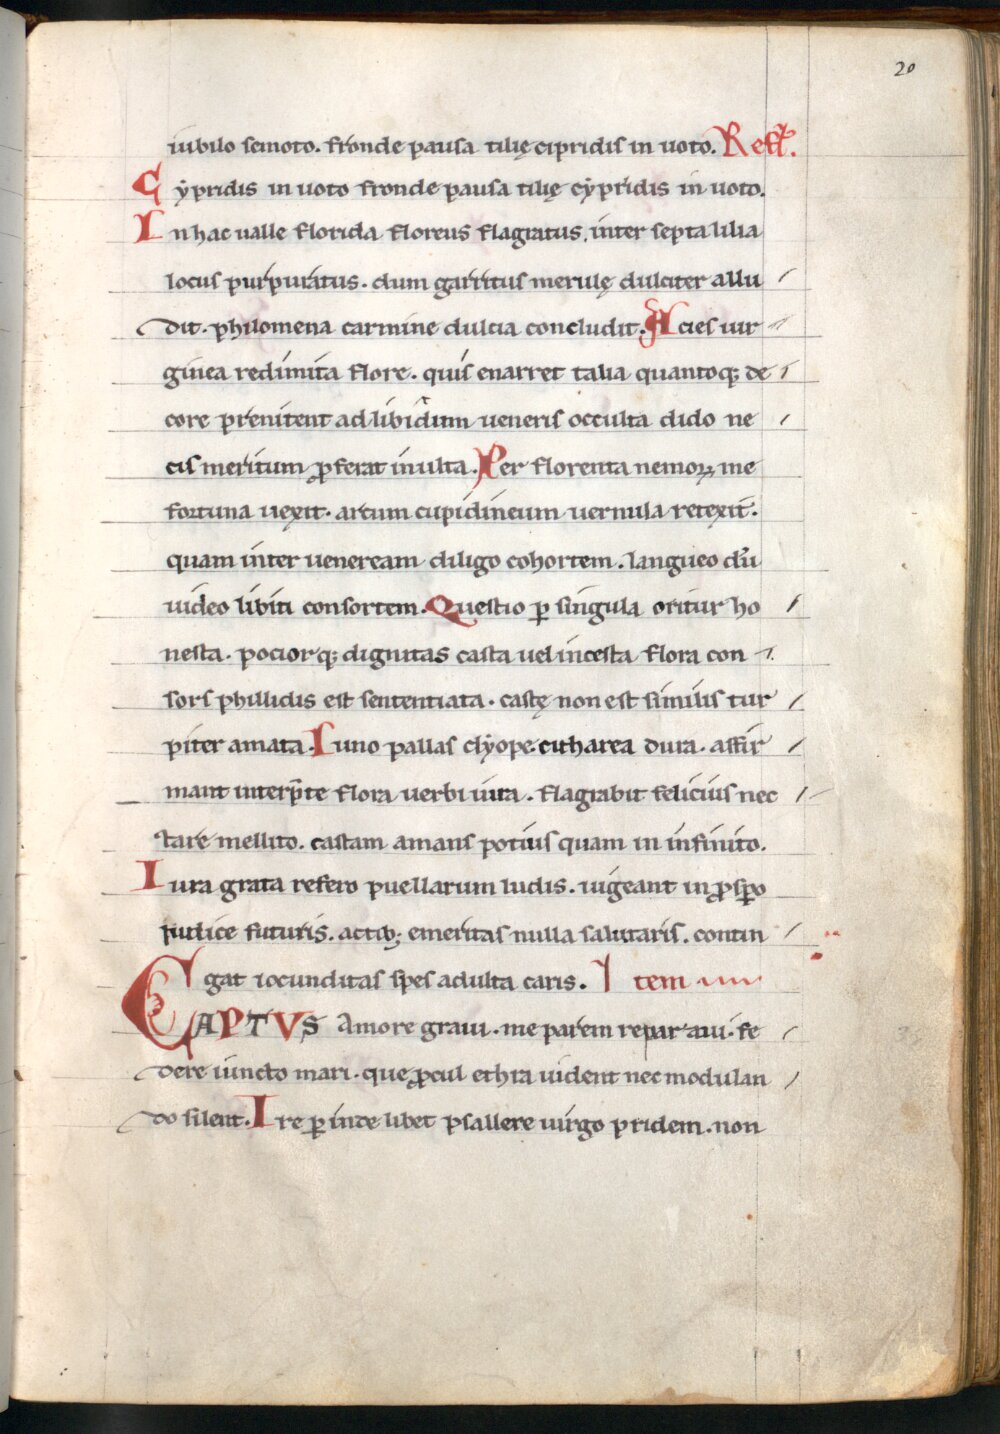 20
iubilo semoto. fronde pausa tilię cipridis in uoto. Refl̃.
Cẏpridis in uoto fronde pausa tilię cẏpridis in uoto.
In hac ualle florida floreus flagratus. inter septa lilia
locus purpuratus. dum garritus merulę dulciter allu
dit. philomena carmine dulcia concludit. Acies uir
ginea redimita flore. quis enarret talia quantoq; de
core prenitent ad libidium ueneris occulta dido ne
cis meritum ꝓferat inulta. Per florenta nemoꝝ me
fortuna uexit. arcum cupidineum uernula retexit.
quam inter ueneream diligo cohortem. langueo dũ
uideo libiti consortem. Questio ꝑ singula oritur ho
nesta. pocior q; dignitas casta uel incesta flora con
sors phillidis est sententiata. castę non est similis tur
piter amata. Iuno pallas clẏope. citharea dura. affir
mant interp̃te flora uerbi uira. flagrabit felicius nec
tare mellito. castam amans potius quam in infinito.
Iura grata refero puellarum ludis. uigeant in ꝓsꝑo
iudice futuris. actib; emeritas nulla salutaris. contin
gat iocunditas spes adulta caris. Item
CAPTUS Amore graui. me parem reparaui. fe
dere iuncto mari. que ꝓcul ethra uident nec modulan
do silent. Ire ꝑ inde libet psallere uirgo pridem. non